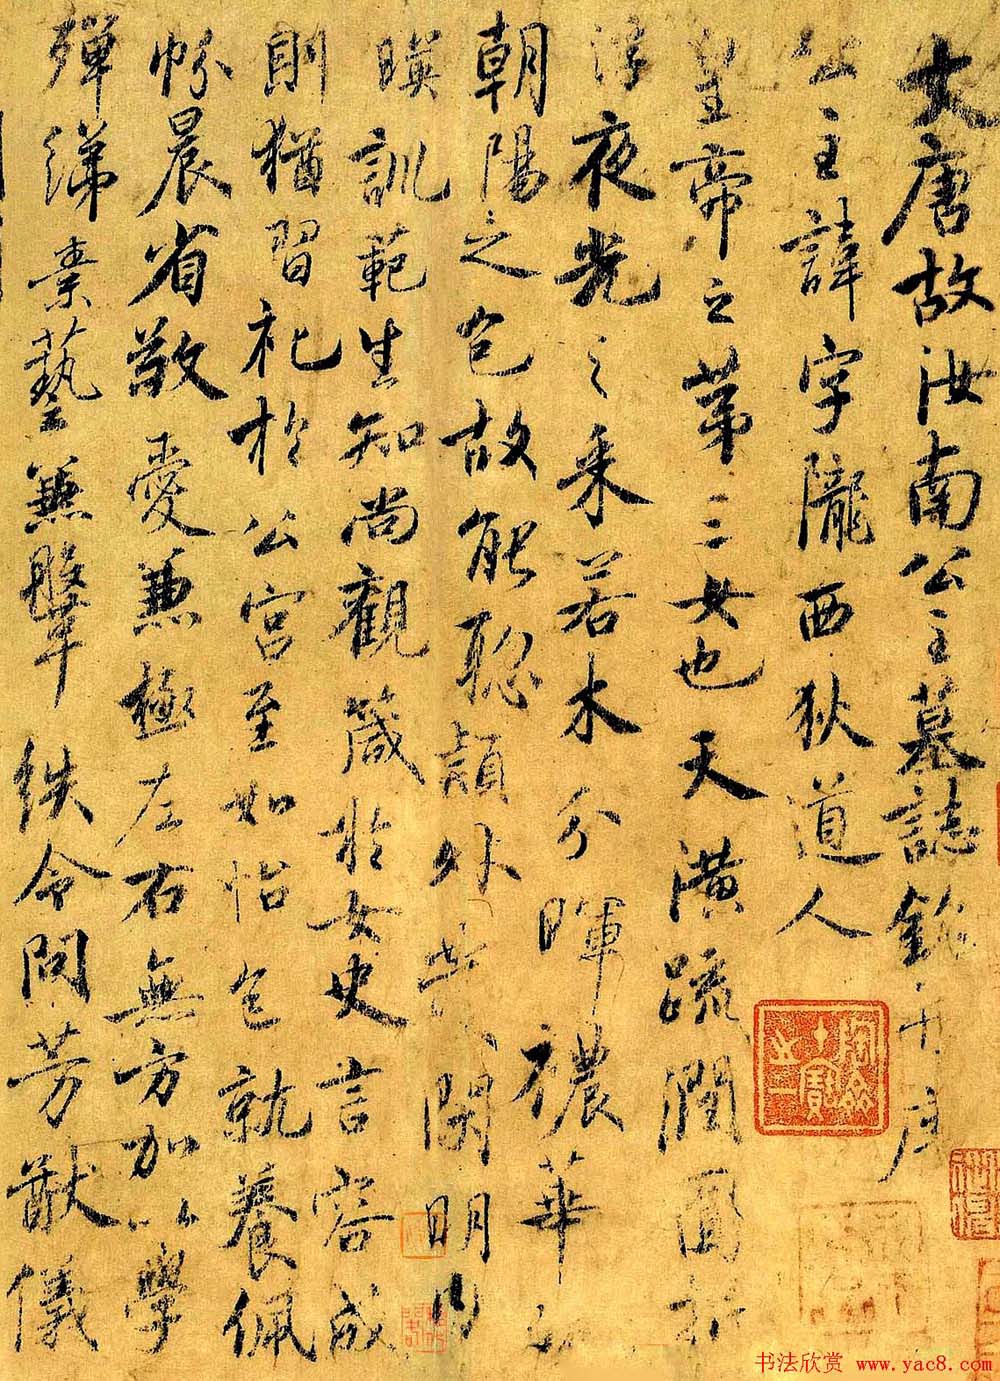 大唐故汝南公主墓誌銘并序
公主諱字隴西狄道人
皇帝之第三女也天潢疏潤圓折
浮夜光之采若木分暉穠華
朝陽之色故能聰穎外發閑明內
暎訓範生知尚觀箴於女史言容成
則猶習礼於公宮至如怡色就養佩
帉晨省敬愛兼極左右無方加以學
殫綈素藝兼鞶紩令問芳猷儀
书法欣赏 www.yac8.com